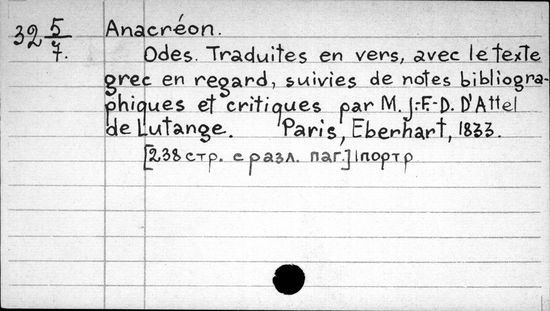 32 5/7.
Anacréon.
Odes. Traduites en vers, avec le texte
grec en regard, suivies de notes bibliogra-
phiques et critiques par M. J.-F.-D. D'Attel
de Lutange. Paris, Eberhart, 1833.
[238 стр. с разл. паг.] 1 портр